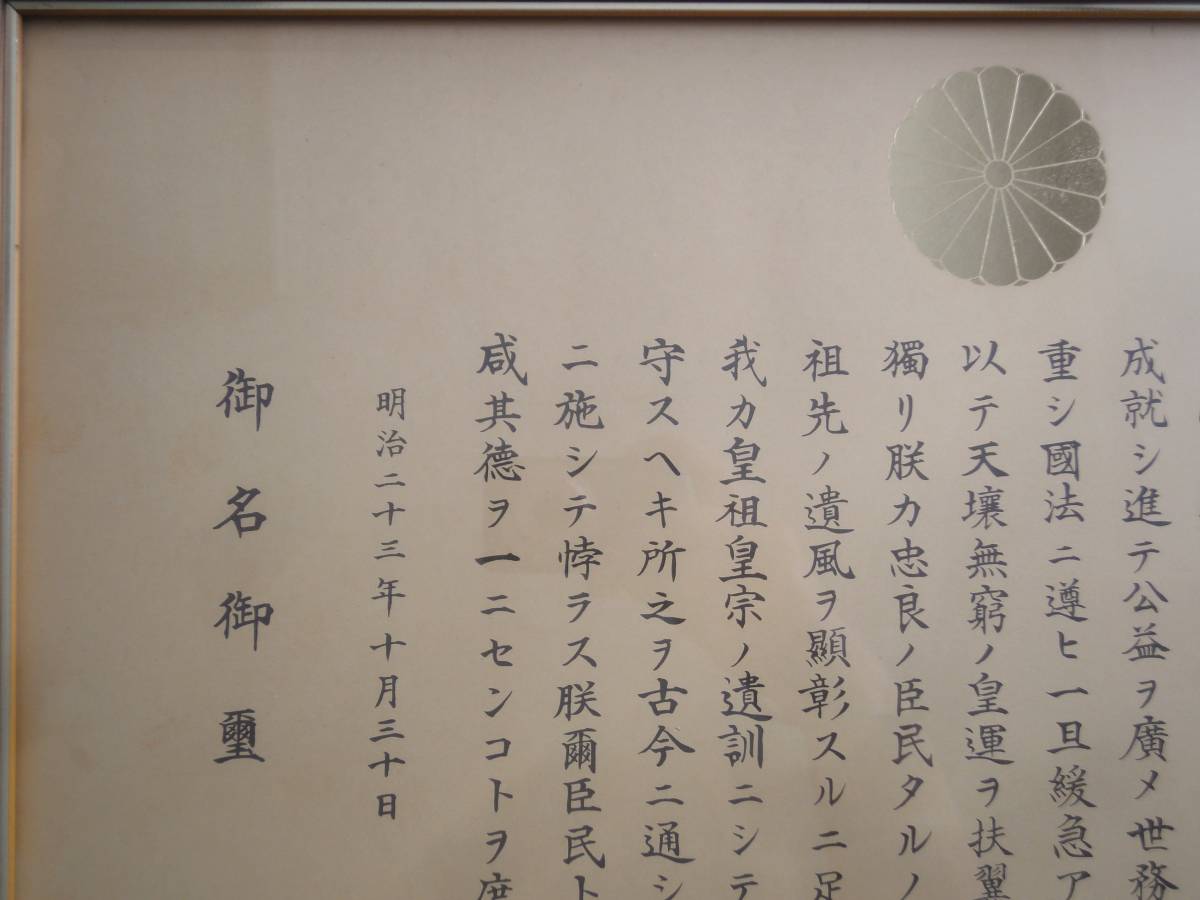 成就シ進テ公益ヲ廣メ世務
重シ國法ニ遵ヒ一旦緩急ア
以テ天壤無窮ノ皇運ヲ扶翼
獨リ朕カ忠良ノ臣民タルノ
祖先ノ遺風ヲ顯彰スルニ足
我カ皇祖皇宗ノ遺訓ニシテ
守スヘキ所之ヲ古今ニ通シ
ニ施シテ悖ラス朕爾臣民ト
咸其德ヲ一ニセンコトヲ庶
明治二十三年十月三十日
御名御璽